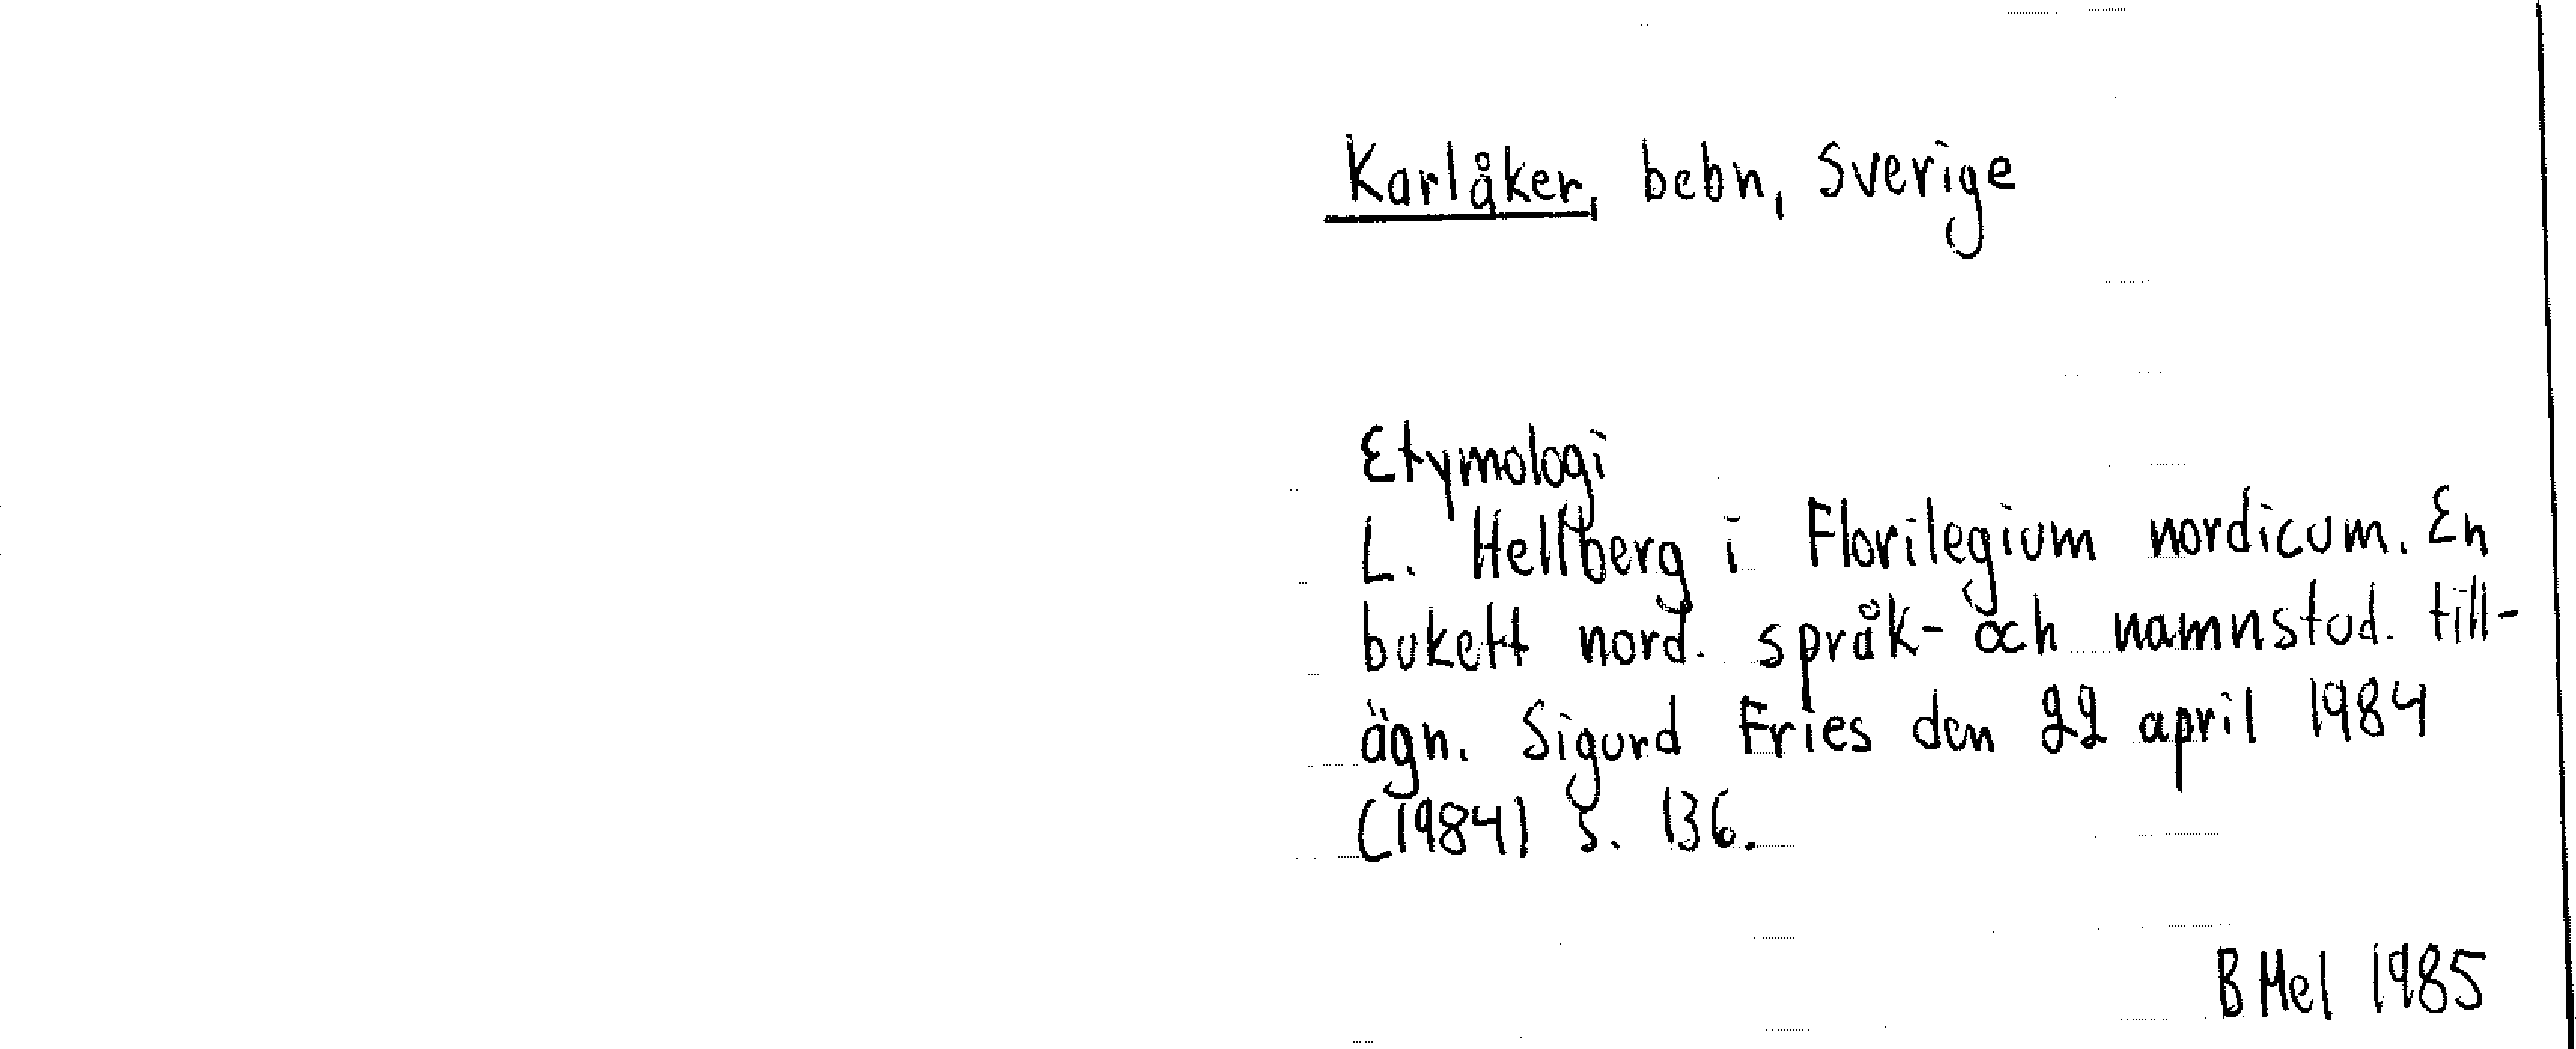 Karlåker, bebn, Sverige
Etymologi
L. Hellberg i Florilegium nordicum. En
bukett nord. språk- och namnstud. till-
ägn. Sigurd Fries den 22 april 1984
(1984) s. 136.
B Mel 1985